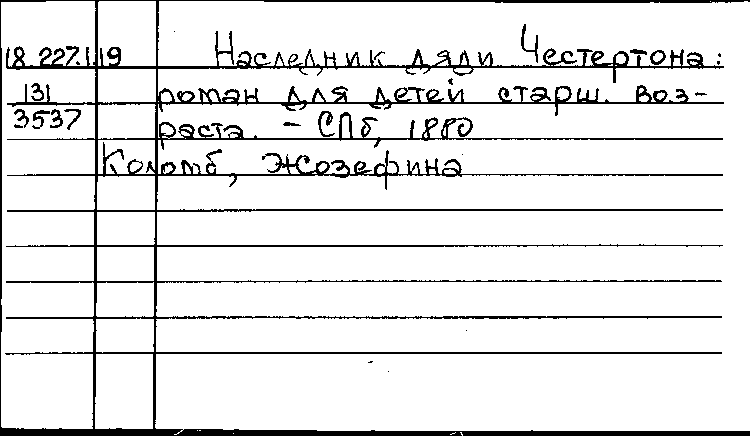 18.227.1.19 Наследник дяди Честертона:
131 роман для детей старш. воз-
3537 раста. - СПб, 1880
Коломб, Жозефина